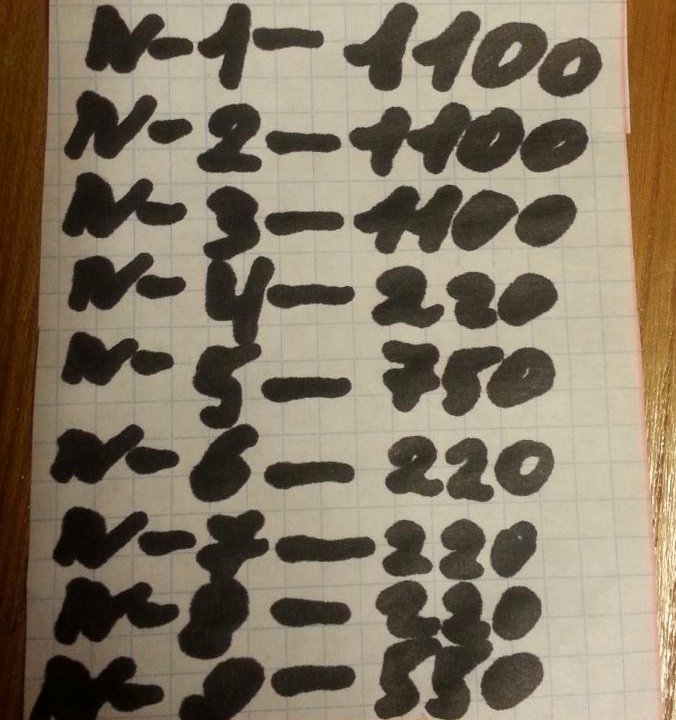 N-1-1100
N-2-1100
N-3-1100
N-4-220
N-5-750
N-6-220
N-7-220
N-8-220
N-9-550